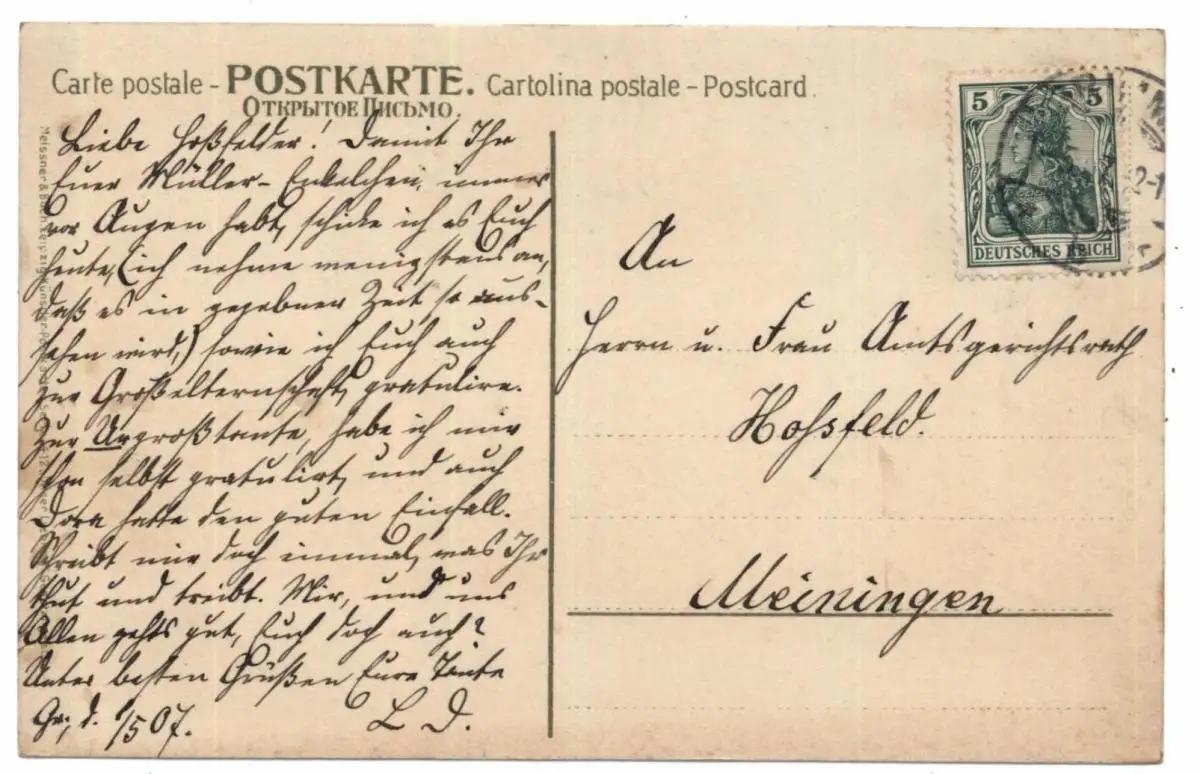 Carte postale - POSTKARTE. Cartolina postale - Postcard
Открытое Письмо.
Liebe Hoßfelder! Damit Ihr
Euer Müller-Enkelchen, immer
vor Augen habt, schicke ich es Euch
heute, (ich nehme wenigstens an,
daß es in gegebner Zeit so aus-
sehen wird,) sowie ich Euch auch
zur Großelternschaft, gratulire.
Zur Urgroßtante, habe ich mir
schon selbst gratulirt, und auch
Dora hatte den guten Einfall.
Schreibt mir doch einmal, was Ihr
thut und treibt. Mir, und uns
Allen gehts gut, Euch doch auch?
Unter besten Grüßen Eure Tante
L D.
d. 1/5 07.
Meissner & Buch, Leipzig
5 5
DEUTSCHES REICH
An
Herrn u. Frau Amtsgerichtsrath
Hossfeld.
Meiningen